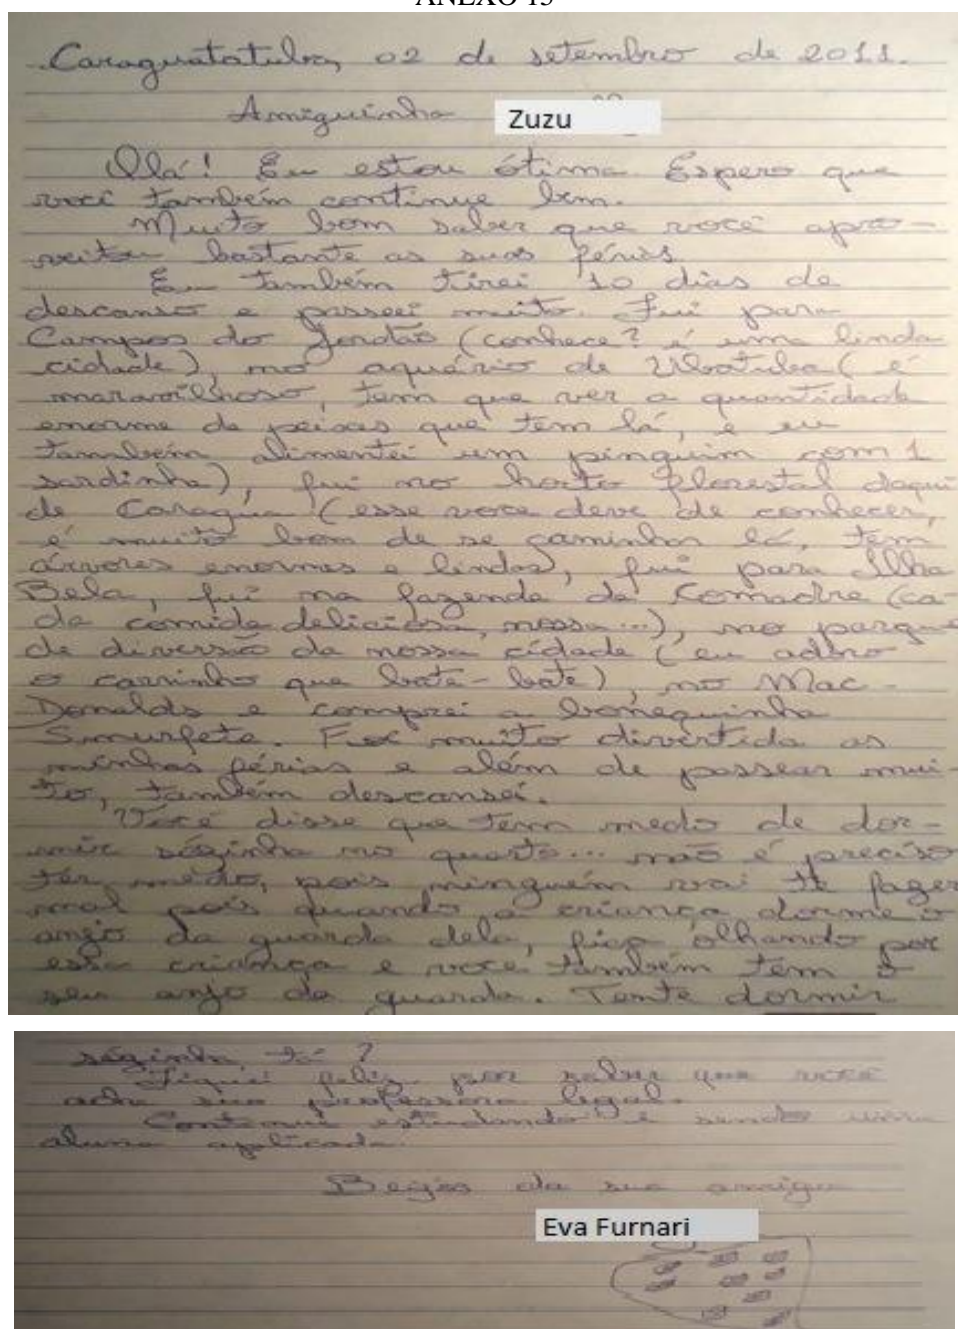 ANEXO 15
Caraguatatuba, 02 de setembro de 2011.
Amiguinha Zuzu
Olá! Eu estou ótima. Espero que
você também continue bem.
Muito bom saber que você apro-
veitou bastante as suas férias.
Eu também tirei 10 dias de
descanso e passeei muito. Fui para
Campos do Jordão (conhece? é uma linda
cidade), no aquário de Ubatuba (é
maravilhoso, tem que ver a quantidade
enorme de peixes que tem lá, e eu
também alimentei um pinguim com 1
sardinha), fui no horto florestal daqui
de Caragua (esse você deve de conhecer,
é muito bom de se caminhar lá, tem
árvores enormes e lindas), fui para Ilha
Bela, fui na fazenda da Comadre (ca-
da comida deliciosa, nossa...), no parque
de diversão da nossa cidade (eu adoro
o carrinho que bate-bate), no Mac-
Donalds e comprei a bonequinha
Smurfete. Foi muito divertida as
minhas férias e além de passear mui-
to, também descansei.
Você disse que tem medo de dor-
mir sózinha no quarto... não é preciso
ter medo, pois ninguém vai te fazer
mal pois quando a criança dorme o
anjo da guarda dela, fica olhando por
essa criança e você também tem o
seu anjo da guarda. Tente dormir
sózinha, tá?
Fiquei feliz por saber que você
acha sua professora legal.
Continue estudando e sendo uma
aluna aplicada.
Beijos da sua amiga
Eva Furnari